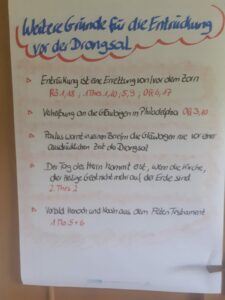 Weitere Gründe für die Entrückung
vor der Drangsal
Entrückung ist eine Errettung von/vor dem Zorn
Rö 1,18, 1Thes 1,10; 5,9, Off 6,17
Verheißung an die Gläubigen in Philadelphia Off 3,10
Paulus warnt in seinen Briefen die Gläubigen nie vor einer
ausdrücklichen Zeit der Drangsal
Der Tag des Herrn kommt erst, wenn die Kirche,
der Heilige Geist nicht mehr auf der Erde sind
2 Thes 2
Vorbild Henoch und Noah aus dem Alten Testament
1 Mo 5+6